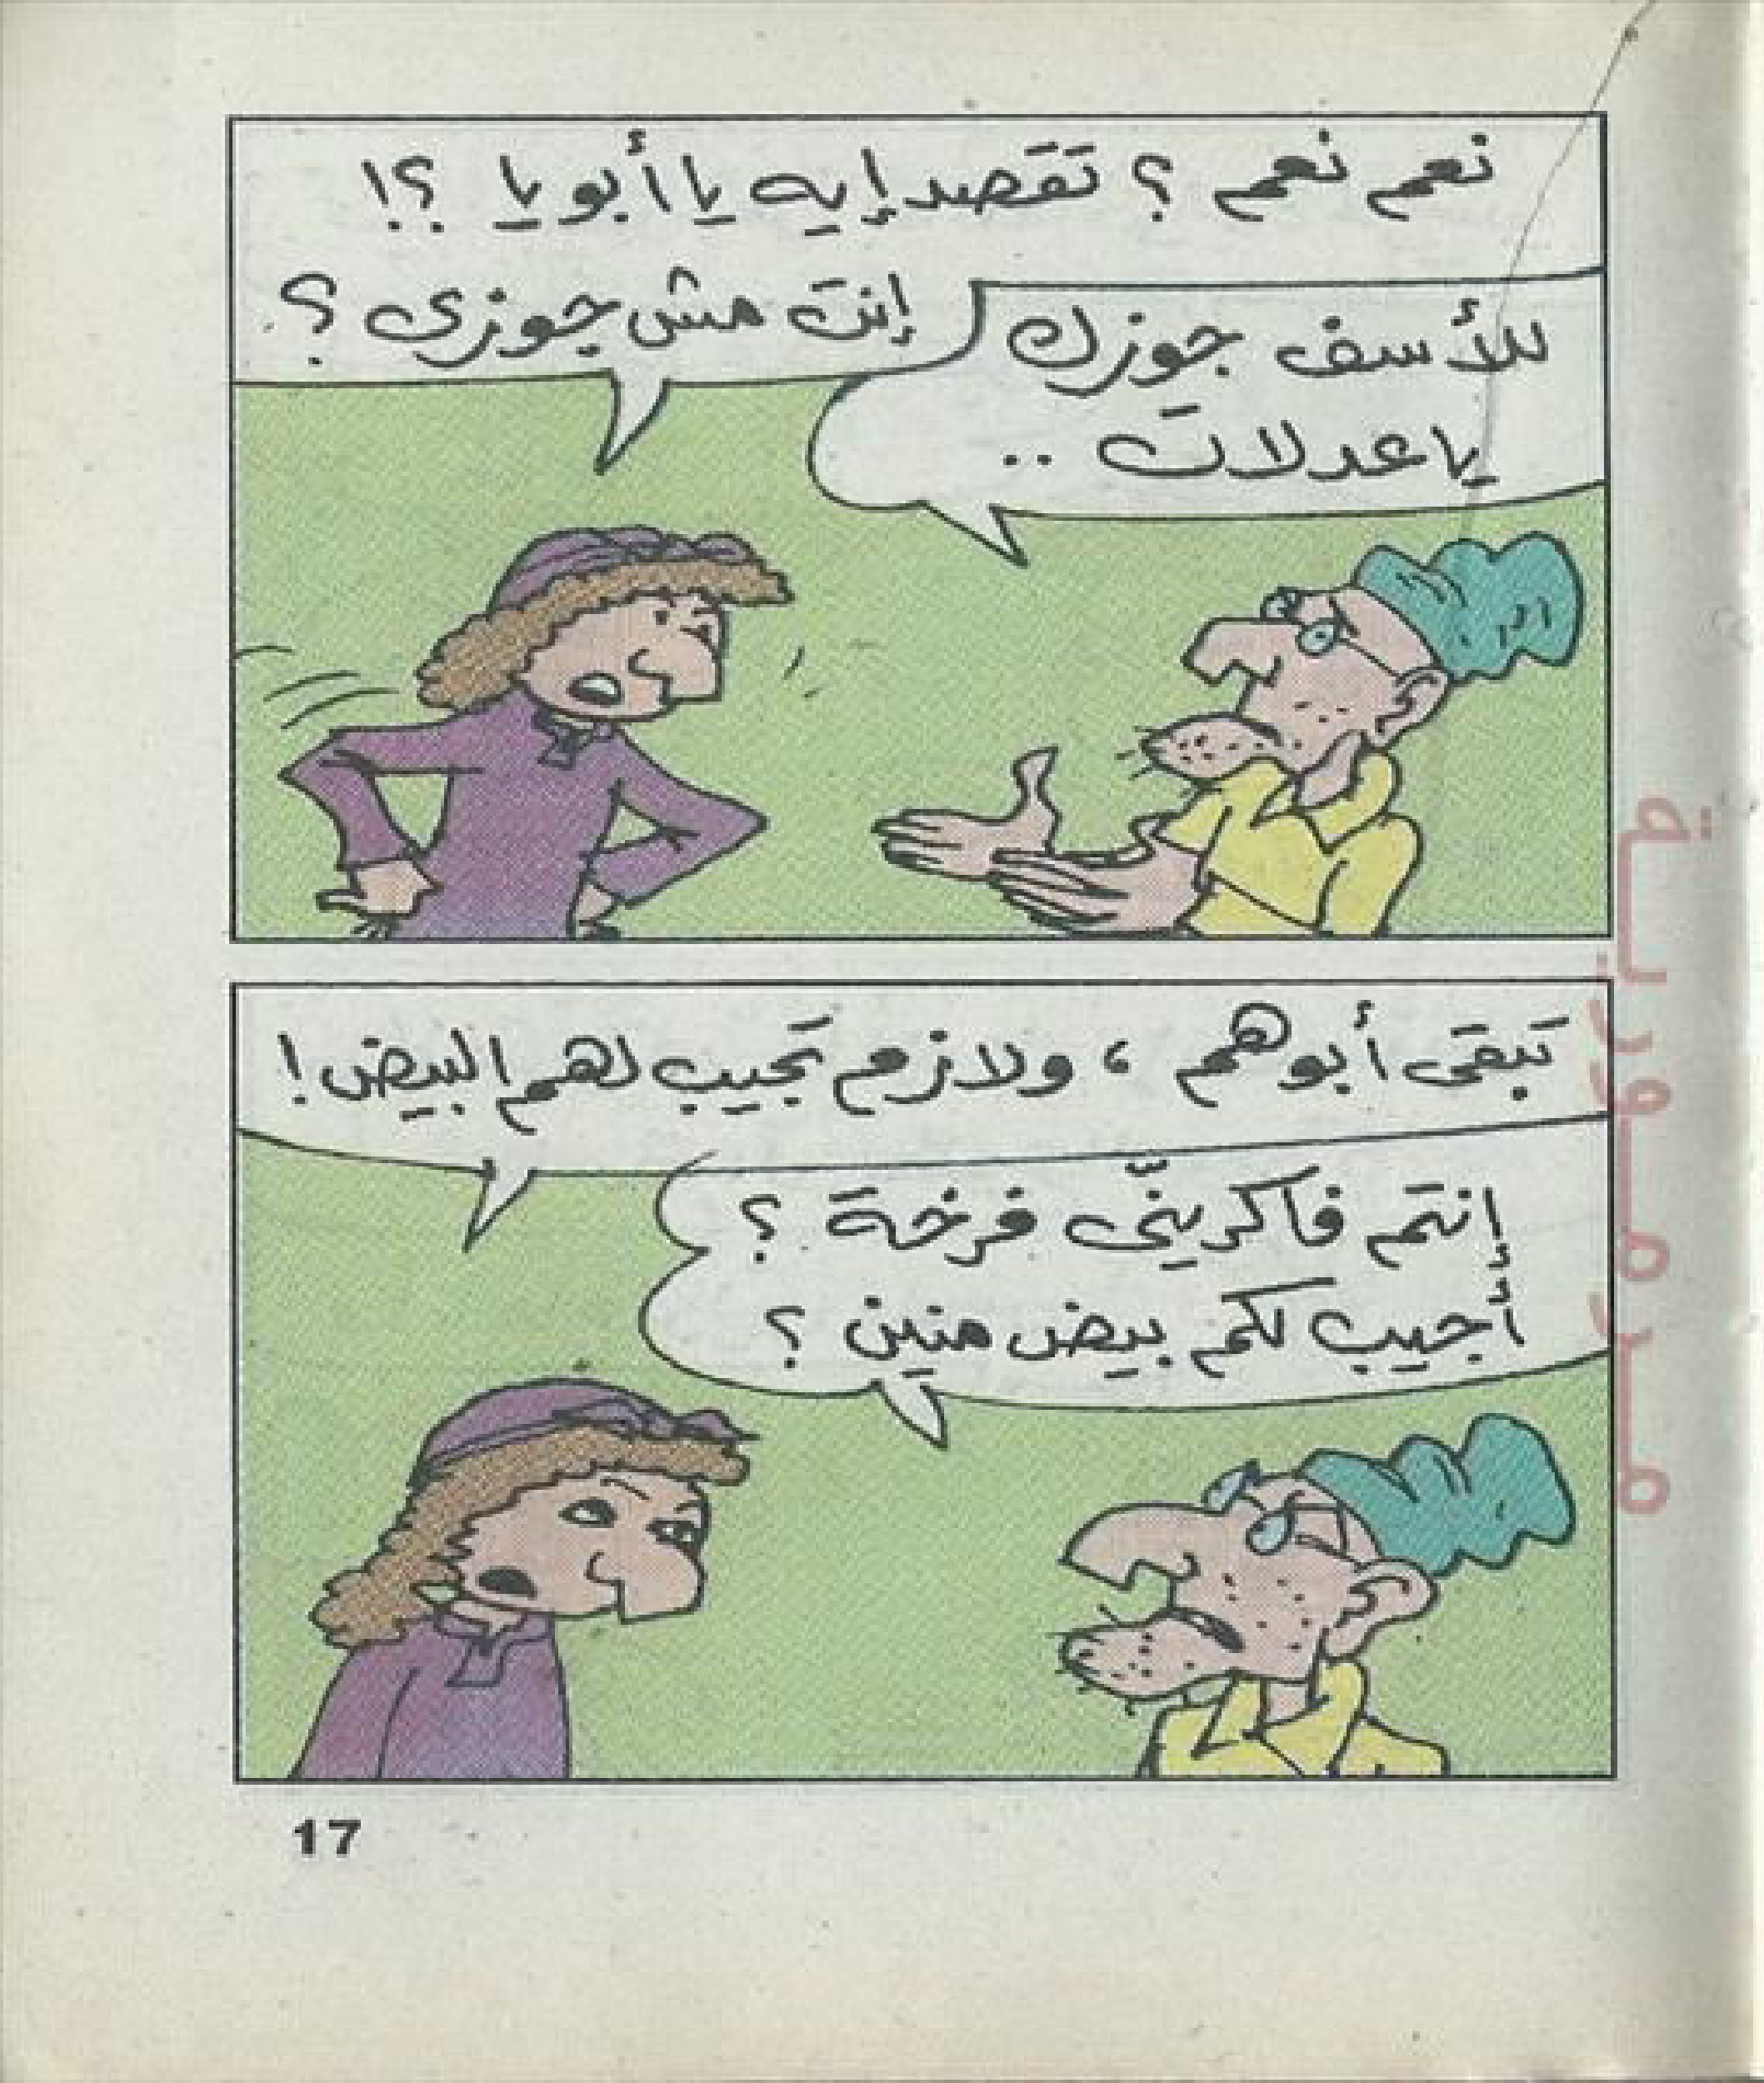 نعم نعم ؟ تقصد إيه يا أبويا ؟!
إنت مش جوزى ؟
للأسف جوزك
يا عدلات ..
تبقى أبوهم ، ولازم تجيب لهم البيض !
إنتم فاكرينّى فرخة ؟
أجيب لكم بيض منين ؟
17
مرمورية